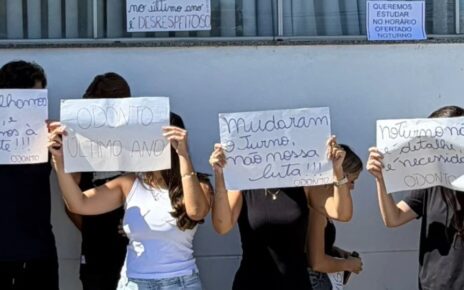 no último ano
é DESRESPEITOSO
QUEREMOS
ESTUDAR NO
HORÁRIO
OFERTADO
NOTURNO
ODONTO
ODONTO
ÚLTIMO ANO
Mudaram
o Turno,
não nossa
luta!!!
ODONTO
Noturno não
é detalhe
é necessida
ODONTO